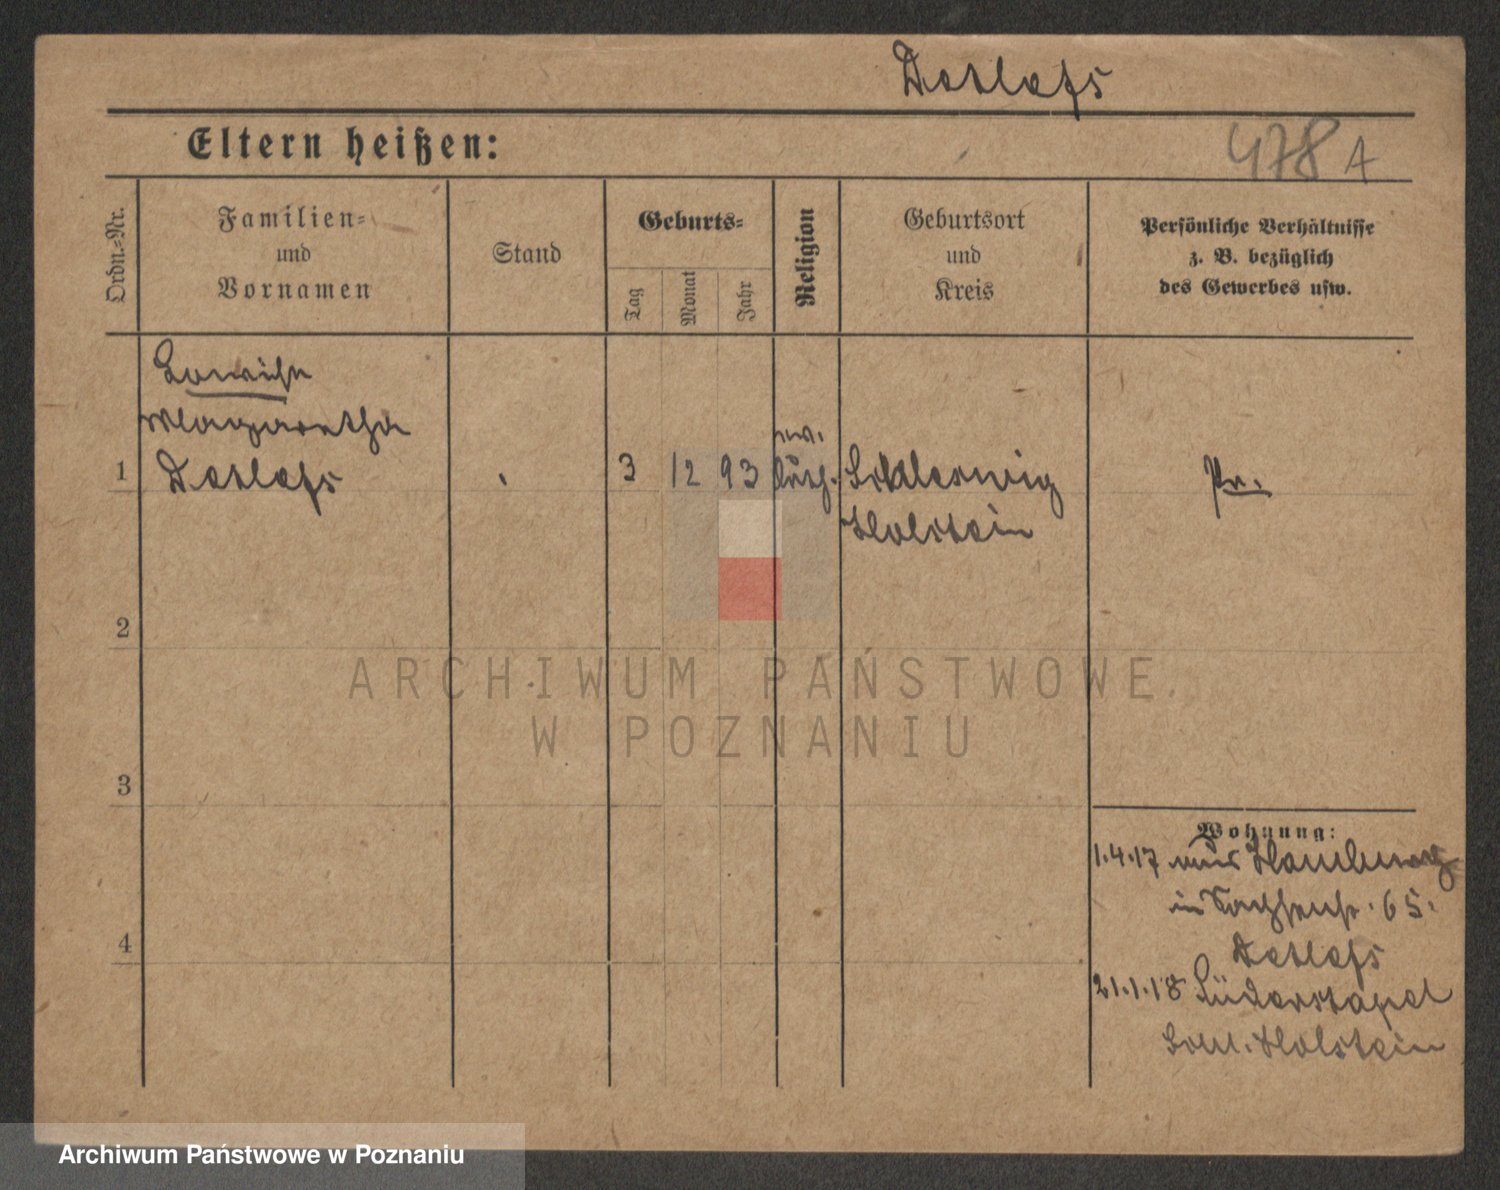 Detlefs
Eltern heißen:
478 A
Ordn.=Nr.
Familien=
und
Vornamen
Stand
Geburts=
Tag
Monat
Jahr
Religion
Geburtsort
und
Kreis
Persönliche Verhältnisse
z. B. bezüglich
des Gewerbes usw.
1
Lowise
Margaretha
Detlefs
3 12 93
ev.
luth.
Schleswig
Holstein
Pr.
2
3
4
Wohnung:
1.4.17 aus Hamburg
in Sachsenstr. 65.
Detlefs
21.1.18 Süderstapel
Schl. Holstein
ARCHIWUM PAŃSTWOWE
W POZNANIU
Archiwum Państwowe w Poznaniu